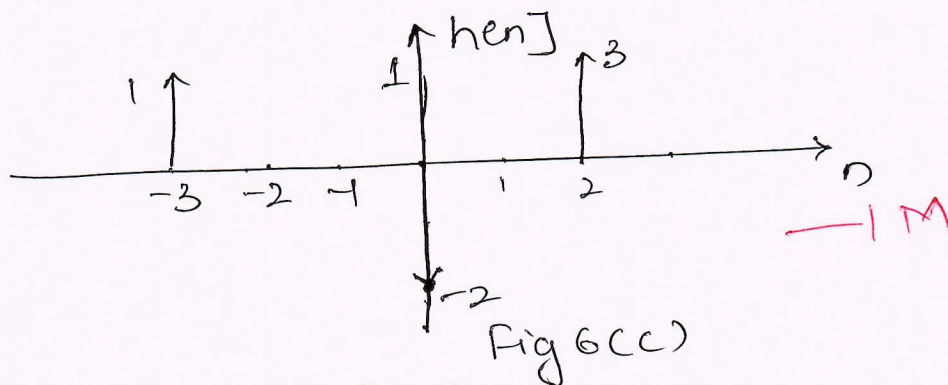 h[n]
1 1 3
-3 -2 -1 1 2 n
-1 M
-2
Fig 6(c)